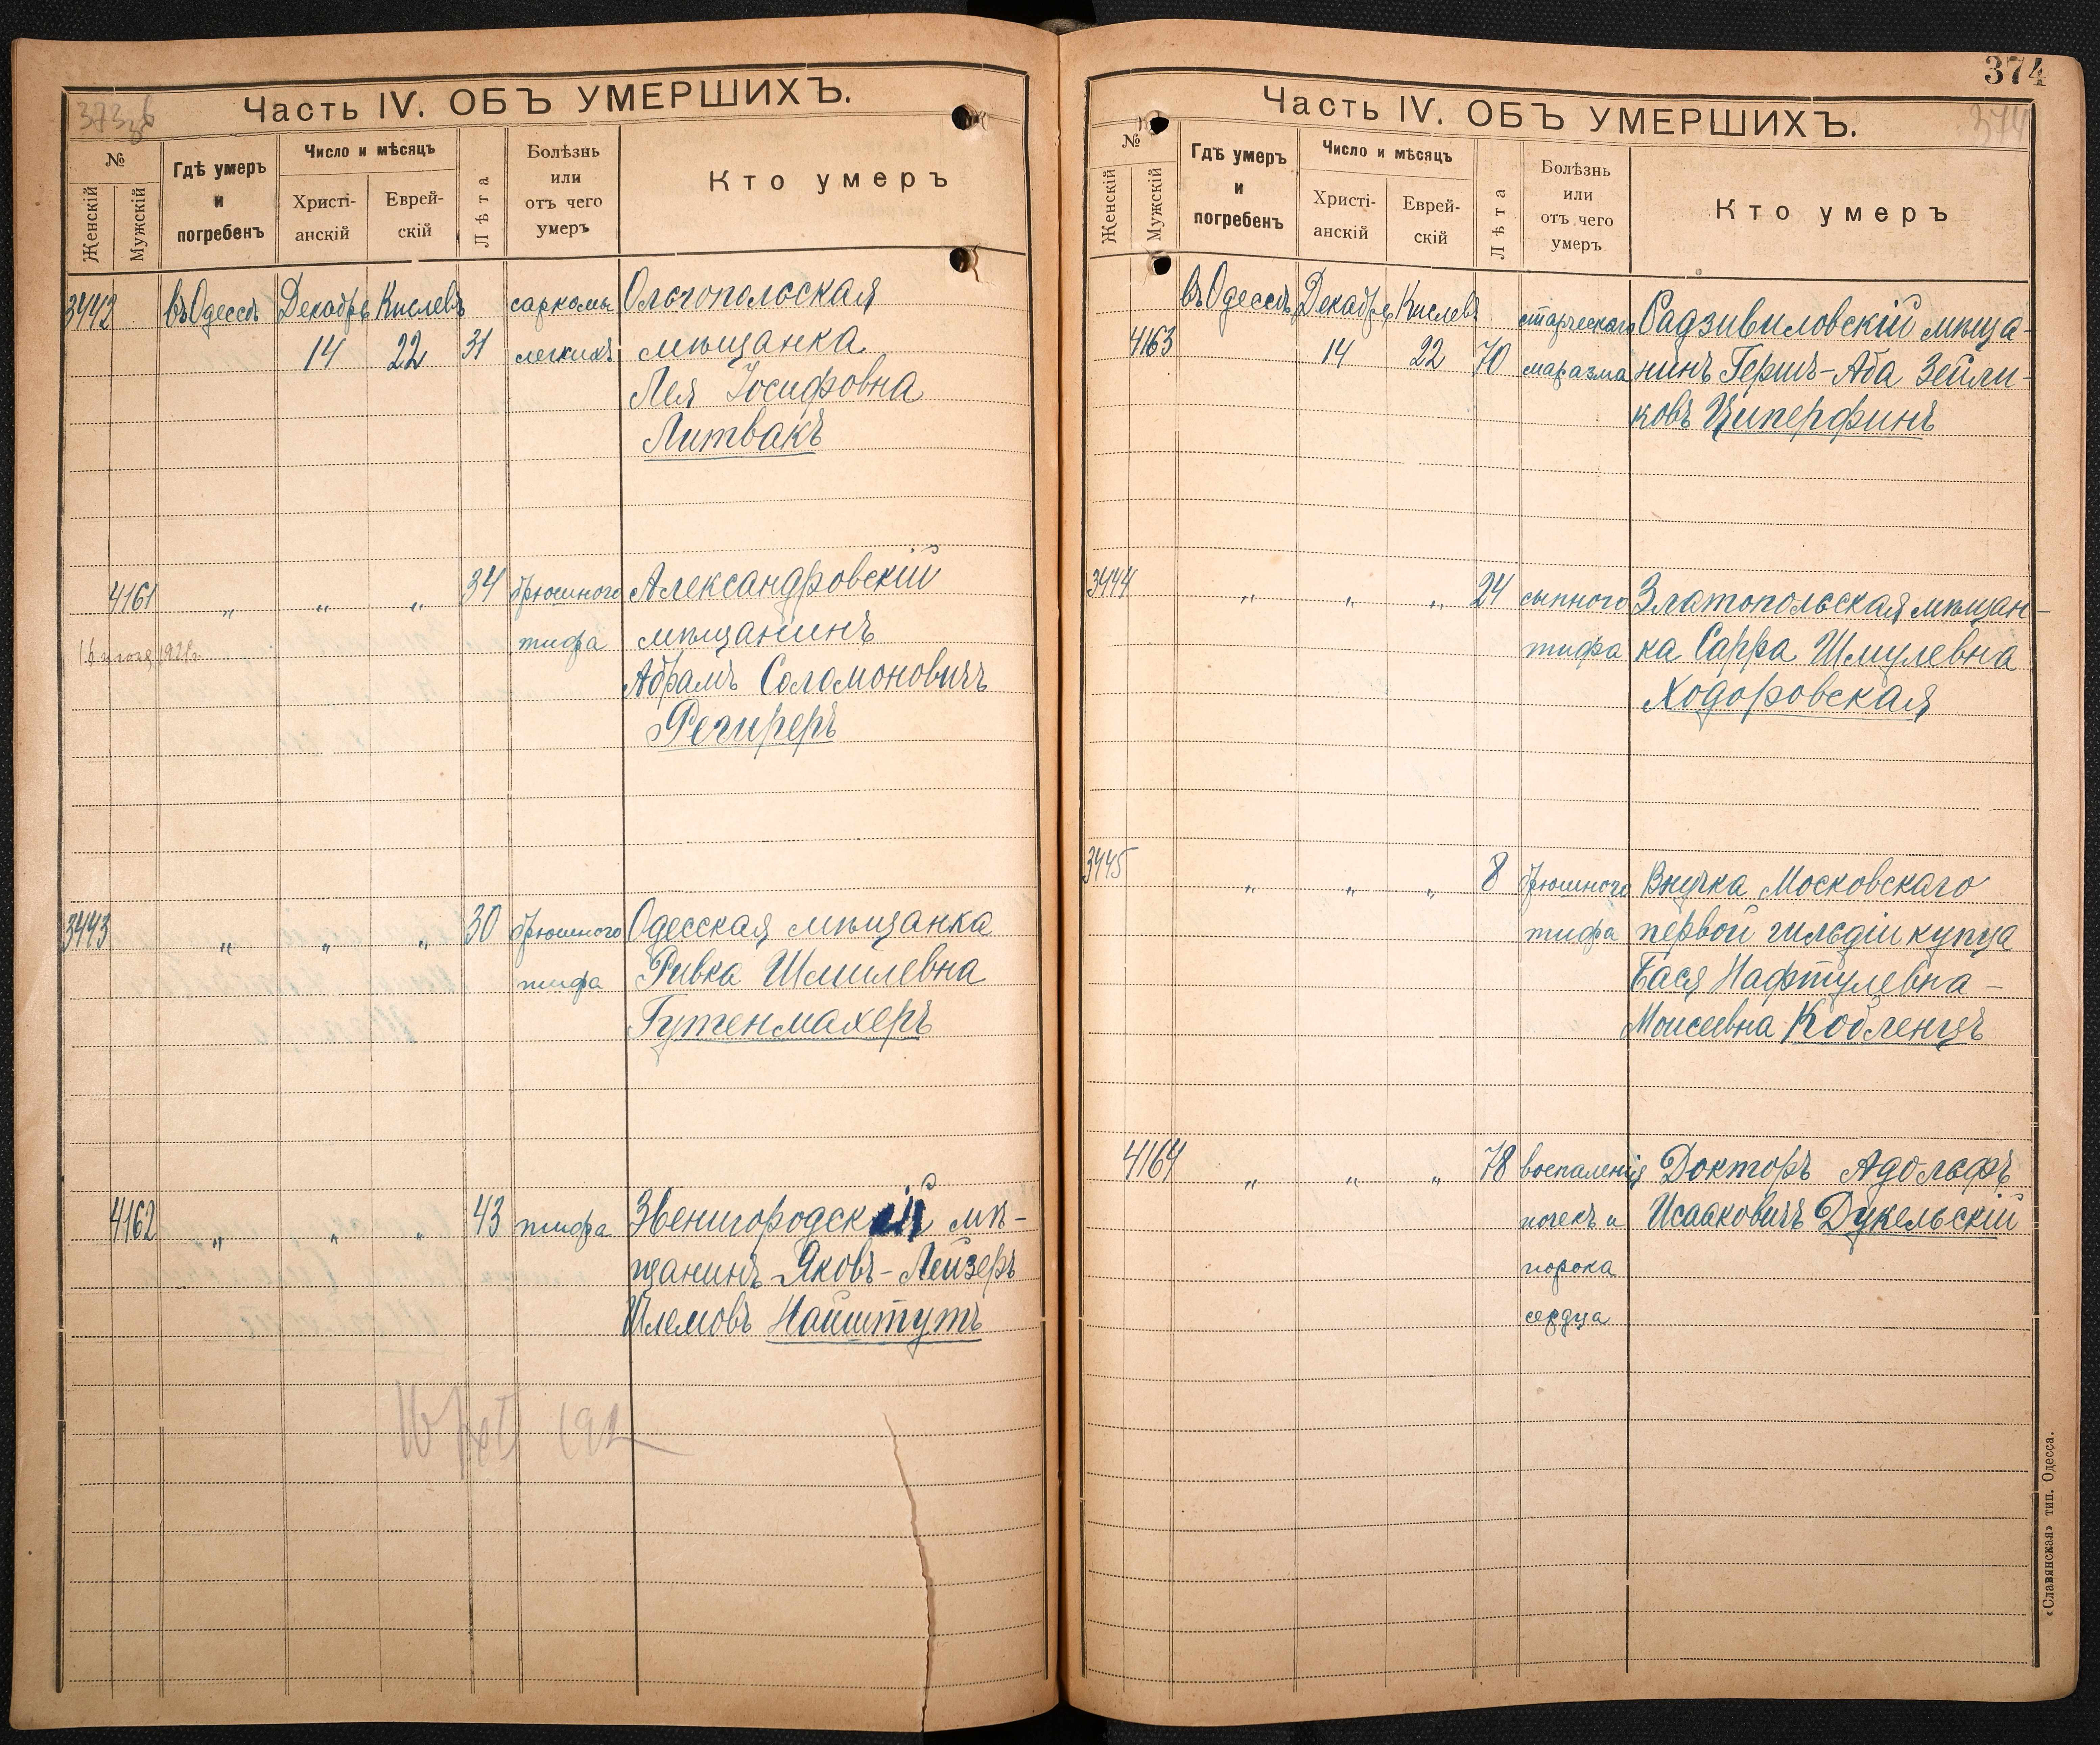 373 зв
Часть IV. ОБЪ УМЕРШИХЪ.
№
Женскій
Мужскій
Гдѣ умеръ
и
погребенъ
Число и мѣсяцъ
Христі-
анскій
Еврей-
скій
Лѣта
Болѣзнь
или
отъ чего
умеръ
Кто умеръ
3442 въ Одессѣ Декабрь Кислевъ саркомы Ольгопольская
14 22 31 легкихъ мѣщанка
Лея Іосифовна
Литвакъ
4161 „ „ „ 34 брюшного Александровскій
тифа мѣщанинъ
Абрамъ Соломоновичъ
Региреръ
3443 „ „ „ 30 брюшного Одесская мѣщанка
тифа Ривка Шмилевна
Гутенмахеръ
4162 „ „ „ 43 тифа Звенигородскій мѣ-
щанинъ Яковъ-Лейзеръ
Шлемовъ Найштутъ
374
Часть IV. ОБЪ УМЕРШИХЪ.
374
№
Женскій
Мужскій
Гдѣ умеръ
и
погребенъ
Число и мѣсяцъ
Христі-
анскій
Еврей-
скій
Лѣта
Болѣзнь
или
отъ чего
умеръ
Кто умеръ
въ Одессѣ Декабрь Кислевъ старческаго Радзивиловскій мѣща-
4163 14 22 70 маразма нинъ Гершъ-Аба Зейли-
ковъ Циперфинъ
3444 „ „ „ 24 сыпного Златопольская мѣщан-
тифа ка Сарра Шмулевна
Ходоровская
3445 „ „ „ 8 брюшного Внучка Московскаго
тифа первой гильдіи купца
Бася Нафтулевна-
Моисеевна Кобленцъ
4164 „ „ „ 78 воспаленія Докторъ Адольфъ
почекъ и Исааковичъ Дукельскій
порока
сердца
«Славянская» тип. Одесса.